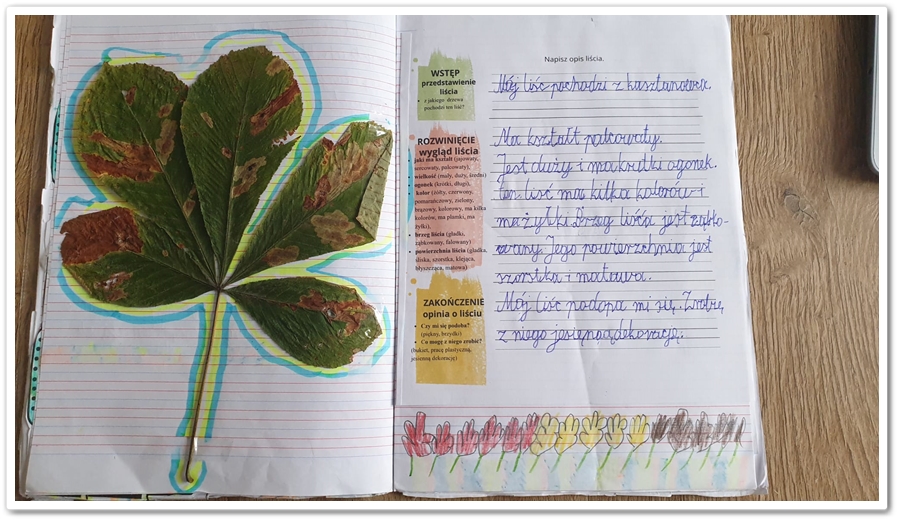 Napisz opis liścia.
WSTĘP
przedstawienie
liścia
• z jakiego drzewa
pochodzi ten liść?
ROZWINIĘCIE
wygląd liścia
jaki ma kształt (jajowaty,
sercowaty, palcowaty),
wielkość (mały, duży, średni)
ogonek (krótki, długi),
• kolor (żółty, czerwony,
pomarańczowy, zielony,
brązowy, kolorowy, ma kilka
kolorów, ma plamki, ma
żyłki),
• brzeg liścia (gładki,
ząbkowany, falowany)
• powierzchnia liścia (gładka,
śliska, szorstka, klejąca,
błyszcząca, matowa)
ZAKOŃCZENIE
opinia o liściu
• Czy mi się podoba?
(piękny, brzydki)
• Co mogę z niego zrobić?
(bukiet, pracę plastyczną,
jesienną dekorację)
Mój liść pochodzi z kasztanowca.
Ma kształt palcowaty.
Jest duży i ma krótki ogonek.
Ten liść ma kilka kolorów i
ma żyłki. Brzeg liścia jest ząbko-
wany. Jego powierzchnia jest
szorstka i matowa.
Mój liść podopa mi się. Zrobię
z niego jesienną dekorację.